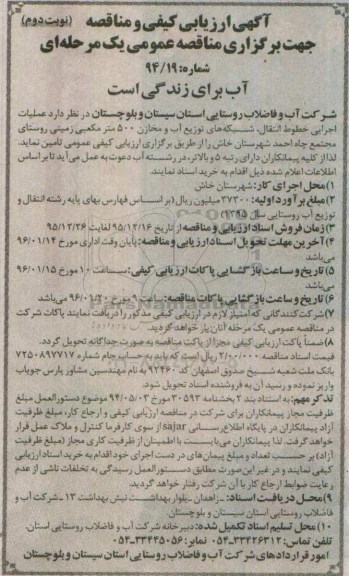 آگهی ارزیابی کیفی و مناقصه (نوبت دوم)
جهت برگزاری مناقصه عمومی یک مرحله‌ای
شماره: ۹۴/۱۹
آب برای زندگی است
شرکت آب و فاضلاب روستایی استان سیستان و بلوچستان در نظر دارد عملیات
اجرایی خطوط انتقال، شبکه‌های توزیع آب و مخازن ۵۰۰ متر مکعبی زمینی روستای
مجتمع چاه احمد شهرستان خاش را از طریق برگزاری ارزیابی کیفی عمومی تامین نماید.
لذا از کلیه پیمانکاران دارای رتبه ۵ و بالاتر، در رشته آب دعوت به عمل می‌آید تا بر اساس
اطلاعات اعلام شده ذیل اقدام به خرید اسناد نمایند.
۱) محل اجرای کار: شهرستان خاش
۲) مبلغ برآورد اولیه: ۳۷۳۰۰ میلیون ریال (بر اساس فهارس بهای پایه رشته انتقال و
توزیع آب روستایی سال ۱۳۹۵)
۳) زمان فروش اسناد ارزیابی و مناقصه: از تاریخ ۹۵/۱۲/۱۶ لغایت ۹۵/۱۲/۲۶
۴) آخرین مهلت تحویل اسناد ارزیابی و مناقصه: پایان وقت اداری مورخ ۹۶/۰۱/۱۴
می‌باشد
۵) تاریخ و ساعت بازگشایی پاکات ارزیابی کیفی: ساعت ۱۰ مورخ ۹۶/۰۱/۱۵
می‌باشد
۶) تاریخ و ساعت بازگشایی پاکات مناقصه: ساعت ۹ مورخ می‌باشد
۷) شرکت‌کنندگانی که امتیاز لازم در ارزیابی کیفی مذکور را دریافت نمایند پاکات شرکت
در مناقصه عمومی یک مرحله آنان باز خواهد گردید.
۸) ضمناً پاکت ارزیابی کیفی مجزا از پاکت مناقصه به صورت جداگانه تحویل گردد.
قیمت اسناد مناقصه ۲/۰۰۰/۰۰۰ ریال است که باید به حساب جام شماره ۷۲۵۰۸۹۷۷۱۷
بانک ملت شعبه شیخ صدوق اصفهان کد ۹۲۴۶۰ به نام مهندسین مشاور پارس جویاب
واریز نموده و رسید آن به فروشنده اسناد تحویل شود.
تذکر مهم: به استناد بند ۲ بخشنامه ۳۰۵۹۳ مورخ ۹۴/۰۵/۰۳ موضوع دستورالعمل مبلغ
ظرفیت مجاز پیمانکاران برای شرکت در مناقصه ارزیابی کیفی و ارجاع کار، مبلغ ظرفیت
آزاد پیمانکاران در پایگاه اطلاع‌رسانی sajar از سوی کارفرما کنترل و ملاک عمل قرار
خواهد گرفت. لذا پیمانکاران می‌بایست با اطمینان از ظرفیت کاری مجاز (مبلغ ظرفیت
آزاد) بر حسب تعداد و مبلغ پیمان‌های در دست اجرای خود اقدام به خرید اسناد ارزیابی
کیفی نمایند و در غیر این صورت مطابق دستورالعمل رسیدگی به تخلفات ناشی از عدم
رعایت ضوابط ارجاع کار با آن شرکت رفتار خواهد گردید.
۹) محل دریافت اسناد: زاهدان ـ بلوار بهداشت نبش بهداشت ۱۳ ـ شرکت آب و
فاضلاب روستایی استان سیستان و بلوچستان
۱۰) محل تسلیم اسناد تکمیل شده: دبیرخانه شرکت آب و فاضلاب روستایی استان.
تلفن تماس: ۳۳۴۲۶۳۱۲-۰۵۴ نمابر: ۳۳۴۴۵۰۵۶-۰۵۴
امور قراردادهای شرکت آب و فاضلاب روستایی استان سیستان و بلوچستان